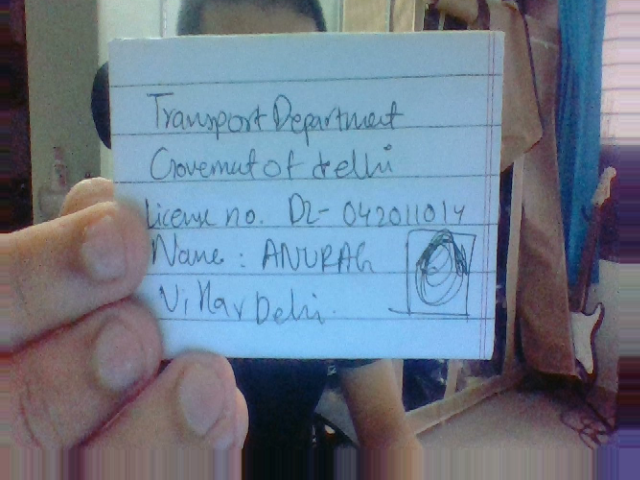 Transport Department
Govermut of delhi
License no. DL- 042011014
Name : ANURAG
Delhi